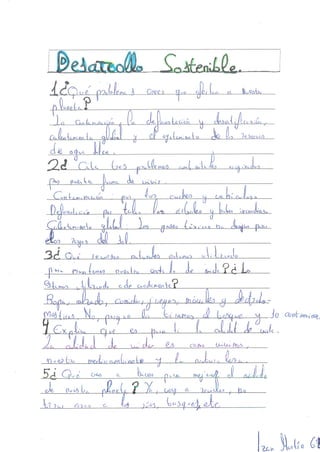 Desarrollo Sostenible.
1¿Qué problemas crees que afectan a nuestro
planeta?
La contaminación, la deforestación y desertificación,
calentamiento global y el agotamiento de las reservas
de agua dulce.
2¿ Cita tres problemas ambientales originados
por nuestra forma de vivir.
Contaminación por los coches y
Deforestación por talar los árboles y
Calentamiento global los gases tóxicos no dejan
los rayos del sol.
3¿ Qué recursos naturales estamos utilizando
para mantener nuestro estilo de vida? ¿Lo
estamos utilizando adecuadamente?
Ropa, calzado, comida, juegos, móviles y
No, porque lo tiramos al bosque y lo contaminamos.
4 Explica que es para ti la calidad de vida.
La calidad de vida es como vivimos,
nuestro medioambiente y la naturaleza.
5¿ Qué vas a hacer para mejorar el
de nuestro planeta? Yo, voy a reciclar, no
tirar cosas a los ríos, bosques, etc.